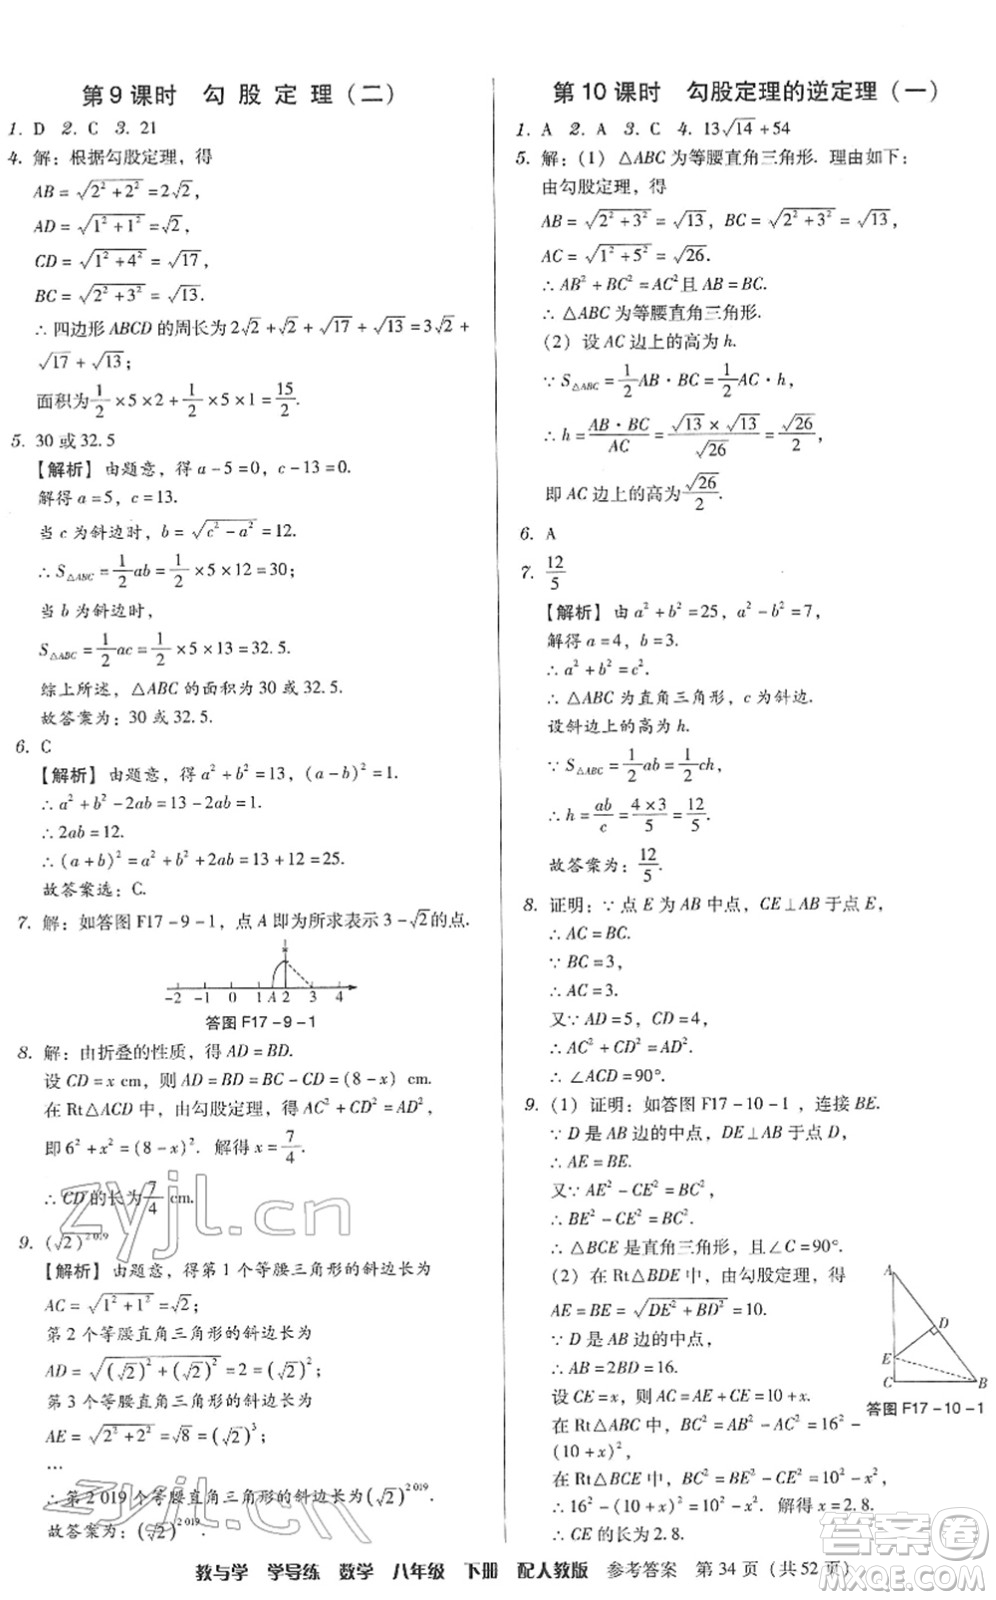 第9课时 勾股定理(二)
1. D 2. C 3. 21
4. 解:根据勾股定理,得
AB=√(2²+2²)=2√2,
AD=√(1²+1²)=√2,
CD=√(1²+4²)=√17,
BC=√(2²+3²)=√13.
∴四边形ABCD的周长为2√2+√2+√17+√13=3√2+
√17+√13;
面积为1/2×5×2+1/2×5×1=15/2.
5. 30或32.5
【解析】由题意,得a-5=0,c-13=0.
解得a=5,c=13.
当c为斜边时,b=√(c²-a²)=12.
∴S△ABC=1/2ab=1/2×5×12=30;
当b为斜边时,
S△ABC=1/2ac=1/2×5×13=32.5.
综上所述,△ABC的面积为30或32.5.
故答案为:30或32.5.
6. C
【解析】由题意,得a²+b²=13,(a-b)²=1.
∴a²+b²-2ab=13-2ab=1.
∴2ab=12.
∴(a+b)²=a²+b²+2ab=13+12=25.
故答案选:C.
7. 解:如答图F17-9-1,点A即为所求表示3-√2的点.
-2 -1 0 1 A 2 3 4
答图F17-9-1
8. 解:由折叠的性质,得AD=BD.
设CD=x cm,则AD=BD=BC-CD=(8-x)cm.
在Rt△ACD中,由勾股定理,得AC²+CD²=AD²,
即6²+x²=(8-x)². 解得x=7/4.
∴CD的长为7/4 cm.
9. (√2)^2019
【解析】由题意,得第1个等腰三角形的斜边长为
AC=√(1²+1²)=√2;
第2个等腰直角三角形的斜边长为
AD=√((√2)²+(√2)²)=2=(√2)²;
第3个等腰直角三角形的斜边长为
AE=√(2²+2²)=√8=(√2)³;
…
∴第2 019个等腰直角三角形的斜边长为(√2)^2019.
故答案为:(√2)^2019.
第10课时 勾股定理的逆定理(一)
1. A 2. A 3. C 4. 13√14+54
5. 解:(1)△ABC为等腰直角三角形. 理由如下:
由勾股定理,得
AB=√(2²+3²)=√13,BC=√(2²+3²)=√13,
AC=√(1²+5²)=√26.
∴AB²+BC²=AC²且AB=BC.
∴△ABC为等腰直角三角形.
(2)设AC边上的高为h.
∵S△ABC=1/2AB·BC=1/2AC·h,
∴h=AB·BC/AC=√13×√13/√26=√26/2,
即AC边上的高为√26/2.
6. A
7. 12/5
【解析】由a²+b²=25,a²-b²=7,
解得a=4,b=3.
∴a²+b²=c².
∴△ABC为直角三角形,c为斜边.
设斜边上的高为h.
∵S△ABC=1/2ab=1/2ch,
∴h=ab/c=4×3/5=12/5.
故答案为:12/5.
8. 证明:∵点E为AB中点,CE⊥AB于点E,
∴AC=BC.
∵BC=3,
∴AC=3.
又∵AD=5,CD=4,
∴AC²+CD²=AD².
∴∠ACD=90°.
9. (1)证明:如答图F17-10-1,连接BE.
∵D是AB边的中点,DE⊥AB于点D,
∴AE=BE.
又∵AE²-CE²=BC²,
∴BE²-CE²=BC².
∴△BCE是直角三角形,且∠C=90°.
(2)在Rt△BDE中,由勾股定理,得
AE=BE=√(DE²+BD²)=10.
∵D是AB边的中点,
∴AB=2BD=16.
设CE=x,则AC=AE+CE=10+x.
在Rt△ABC中,BC²=AB²-AC²=16²-
(10+x)²,
在Rt△BCE中,BC²=EB²-CE²=10²-x²,
∴16²-(10+x)²=10²-x². 解得x=2.8.
∴CE的长为2.8.
A
D
E
C B
答图F17-10-1
教与学 学导练 数学 八年级 下册 配人教版 参考答案 第34页(共52页)
zyjl.cn
zyjl.cn
答案圈
MXQE.COM